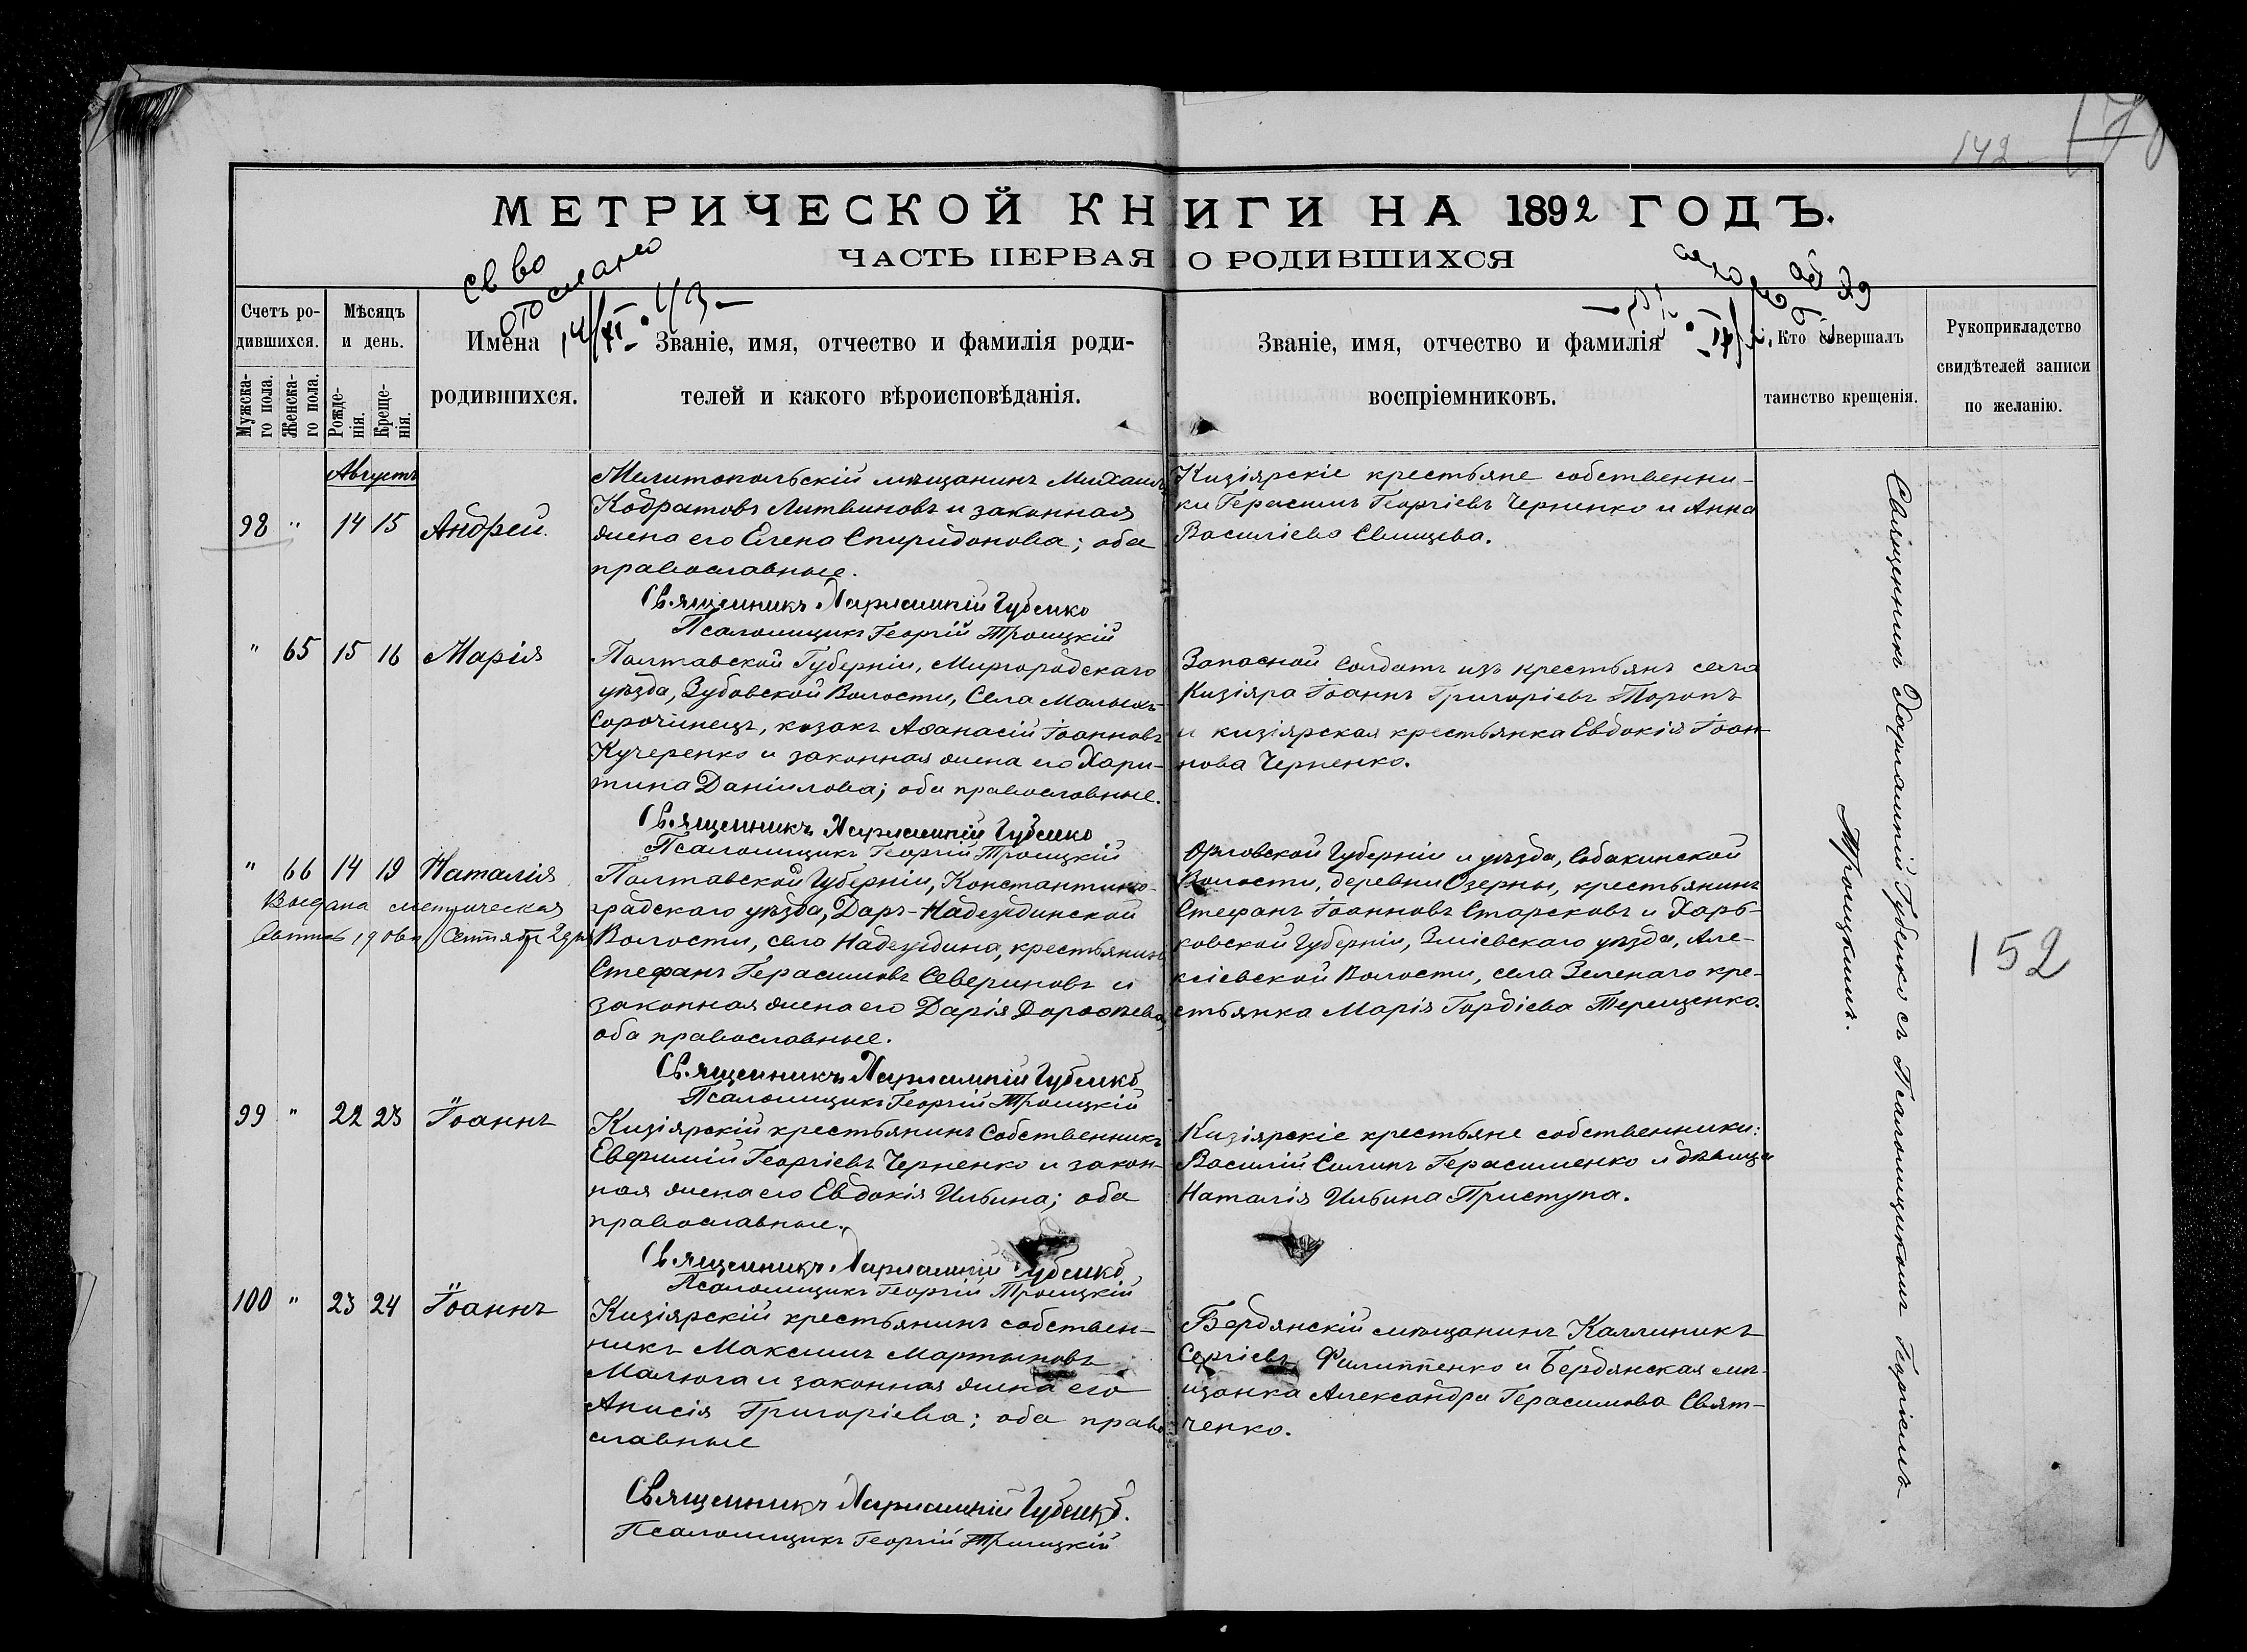 142
МЕТРИЧЕСКОЙ КНИГИ НА 1892 ГОДЪ.
ЧАСТЬ ПЕРВАЯ О РОДИВШИХСЯ
св во
отослано
14/XI 43
Счетъ ро-
дившихся.
Мужска-
го пола.
Женска-
го пола.
Мѣсяцъ
и день.
Рожде-
нія.
Креще-
нія.
Имена
родившихся.
Званіе, имя, отчество и фамилія роди-
телей и какого вѣроисповѣданія.
Званіе, имя, отчество и фамилія
воспріемниковъ.
Кто совершалъ
таинство крещенія.
Рукоприкладство
свидѣтелей записи
по желанію.
Августъ
98 " 14 15 Андрей.
Мелитопольскій мѣщанинъ Михаилъ
Кодратовъ Литвиновъ и законная
жена его Елена Спиридонова; оба
православные.
Священникъ Харлампій Губенко
Псаломщикъ Георгій Троицкій
Кизіярскіе крестьяне собственни-
ки Герасимъ Георгіевъ Черненко и Анна
Василіева Свищева.
" 65 15 16 Марія
Полтавской Губерніи, Миргородскаго
уѣзда, Зубовской Волости, Села Малыхъ-
Сорочинецъ, козакъ Аѳанасій Іоанновъ
Кучеренко и законная жена его Хари-
тина Даніилова; оба православные.
Священникъ Харлампій Губенко
Псаломщикъ Георгій Троицкій
Запасной Солдатъ изъ крестьянъ села
Кизіяра Іоаннъ Григоріевъ Торопъ
и кизіярская крестьянка Евдокія Іоан-
нова Черненко.
" 66 14 19 Наталія
Выдана метрическая
Сентября 2 дня
Полтавской Губерніи, Константино-
градскаго уѣзда, Даръ-Надеждинской
Волости, село Надеждина, крестьянинъ
Стефанъ Герасимовъ Севериновъ и
законная жена его Дарія Дороѳѣева,
оба православные.
Священникъ Харлампій Губенко
Псаломщикъ Георгій Троицкій
Орловской Губерніи и уѣзда, Собакинской
Волости, деревни Озерны, крестьянинъ
Стефанъ Іоанновъ Старсковъ и Харь-
ковской Губерніи, Зміевскаго уѣзда, Але-
ксіевской Волости, села Зеленаго кре-
стьянка Марія Гордіева Терещенко.
99 " 22 23 Іоаннъ
Кизіярскій крестьянинъ Собственникъ
Евфимій Георгіевъ Черненко и закон-
ная жена его Евдокія Ильина; оба
православные.
Священникъ Харлампій Губенко
Псаломщикъ Георгій Троицкій
Кизіярскіе крестьяне собственники:
Василій Силинъ Герасименко и дѣвица
Наталія Ильина Приступа.
100 " 23 24 Іоаннъ
Кизіярскій крестьянинъ собствен-
никъ Максимъ Мартыновъ
Малюга и законная жена его
Анисія Григоріева; оба право-
славные
Священникъ Харлампій Губенко.
Псаломщикъ Георгій Троицкій
Бердянскій мѣщанинъ Каллиникъ
Сергіевъ Филиппенко и Бердянская мѣ-
щанка Александра Герасимова Свят-
ченко.
Священникъ Харлампій Губенко съ Псаломщикомъ Георгіемъ
Троицкимъ.
152